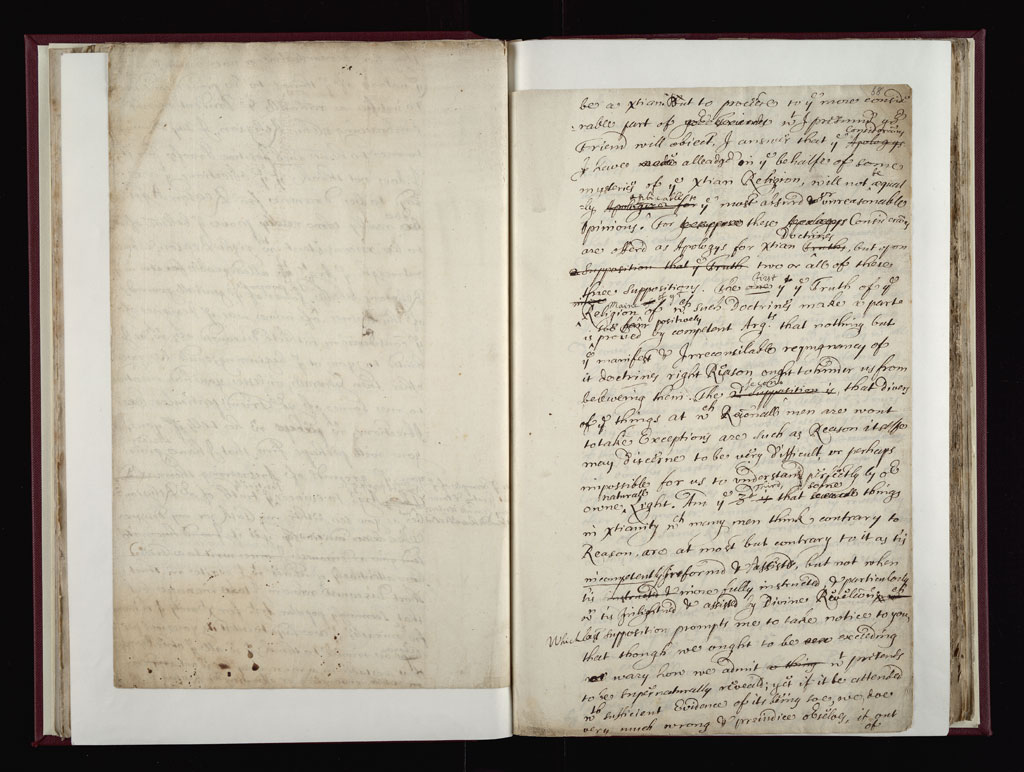 be a Xtian. But to proceede to yᵉ more consid
rable part of wᵗ I presume yoʳ
Friend will object, I answer that yᵉ Apologys
Considerations
I have alleadg'd in yᵉ behalfe of some
mysteries of yᵉ Xtian Religion, will not be equal
ly applicable to yᵉ most absurd & unreasonable
opinions. For these Apologys Considerations
are offerd as Apologys for Xtian Truths, but upon
Doctrines
a Supposition that yᵉ Truth two or all of these
three Suppositions. The First is yᵗ yᵉ Truth of yᵉ
Religion of wᶜʰ such Doctrines make a parte
is positively
proved by competent Argᵗˢ that nothing but
yᵉ manifest & Irreconsilable repugnancy of
it doctrines right Reason ought to hinder us from
beleeving them. The second Supposition is, that divers
of yᵉ things at wᶜʰ Rationall men are wont
to take Exceptions are such as Reason it selfe
may discerne to be very difficult, or perhaps
impossible for us to understand perfectly by oʳ
owne naturall Light. And yᵉ third is that some things
in Xtianity wᶜʰ many men think contrary to
Reason, are at most but contrary to it as tis
incompetently informd & assisted, but not when
tis Instructed more fully instructed & particularly
wⁿ tis Inlightned & assisted by Divine Revelation.
Which last supposition prompts me to take notice to you,
that though we ought to be exceeding
wary how we admit a thing wᵗ pretends
to be supernaturally reveald; yet if it be attended
wᵗʰ sufficient Evidence of its being soe, we doe
very much wrong & prejudice ourselves, if out
of